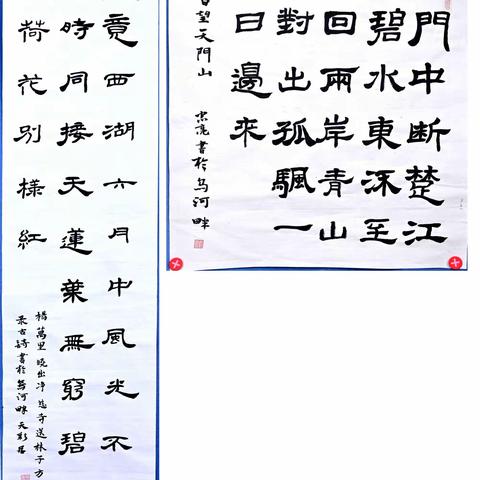 門中断楚江
碧水東流至
回兩岸青山
對出孤颿一
日邊來
白望天門山
書於烏河畔
竟西湖六月中風光不
時同接天蓮葉無窮碧
荷花别樣紅
楊萬里曉出净慈寺送林子方
录古詩書於烏河畔天彩居